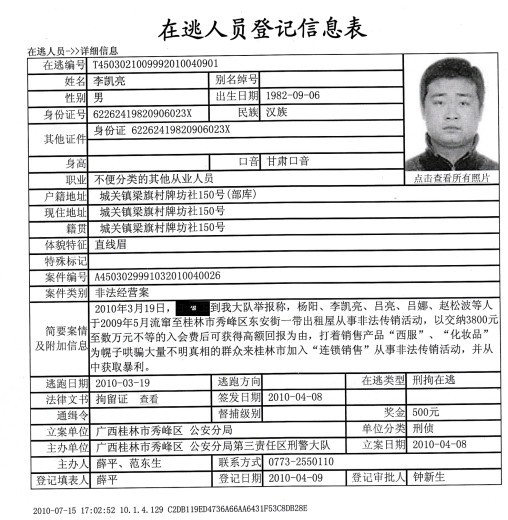 在逃人员登记信息表
在逃人员->>详细信息
在逃编号 T4503021009992010040901
姓名 李凯亮 别名绰号
性别 男 出生日期 1982-09-06
身份证号 62262419820906023X 民族 汉族
其他证件 身份证 62262419820906023X
身高 口音 甘肃口音
职业 不便分类的其他从业人员 点击查看所有照片
户籍地址 城关镇梁旗村牌坊社150号(部库)
现住地址 城关镇梁旗村牌坊社150号
籍贯 城关镇梁旗村牌坊社150号
体貌特征 直线眉
特殊标记
案件编号 A4503029991032010040026
案件类别 非法经营案
简要案情及附加信息
2010年3月19日，到我大队举报称，杨阳、李凯亮、吕亮、吕娜、赵松波等人
于2009年5月流窜至桂林市秀峰区东安街一带出租屋从事非法传销活动，以交纳3800元
至数万元不等的入会费后可获得高额回报为由，打着销售产品"西服"、"化妆品"
为幌子哄骗大量不明真相的群众来桂林市加入"连锁销售"从事非法传销活动，并从
中获取暴利。
逃跑日期 2010-03-19 逃跑方向 在逃类型 刑拘在逃
法律文书 拘留证 查看 签发日期 2010-04-08
通缉令 督捕级别 奖金 500元
立案单位 广西桂林市秀峰区 公安分局 单位分类 刑侦
主办单位 广西桂林市秀峰区 公安分局第三责任区刑警大队 立案日期 2010-04-08
主办人 薛平、范东生 联系方式 0773-2550110
登记填表人 薛平 登记日期 2010-04-09 登记审批人 钟新生
2010-07-15 17:02:52 10.1.4.129 C2DB119ED4736A66AA6431F53C8DB28E